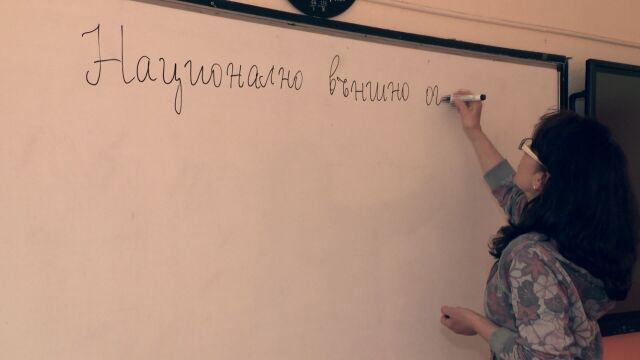 Национално външно